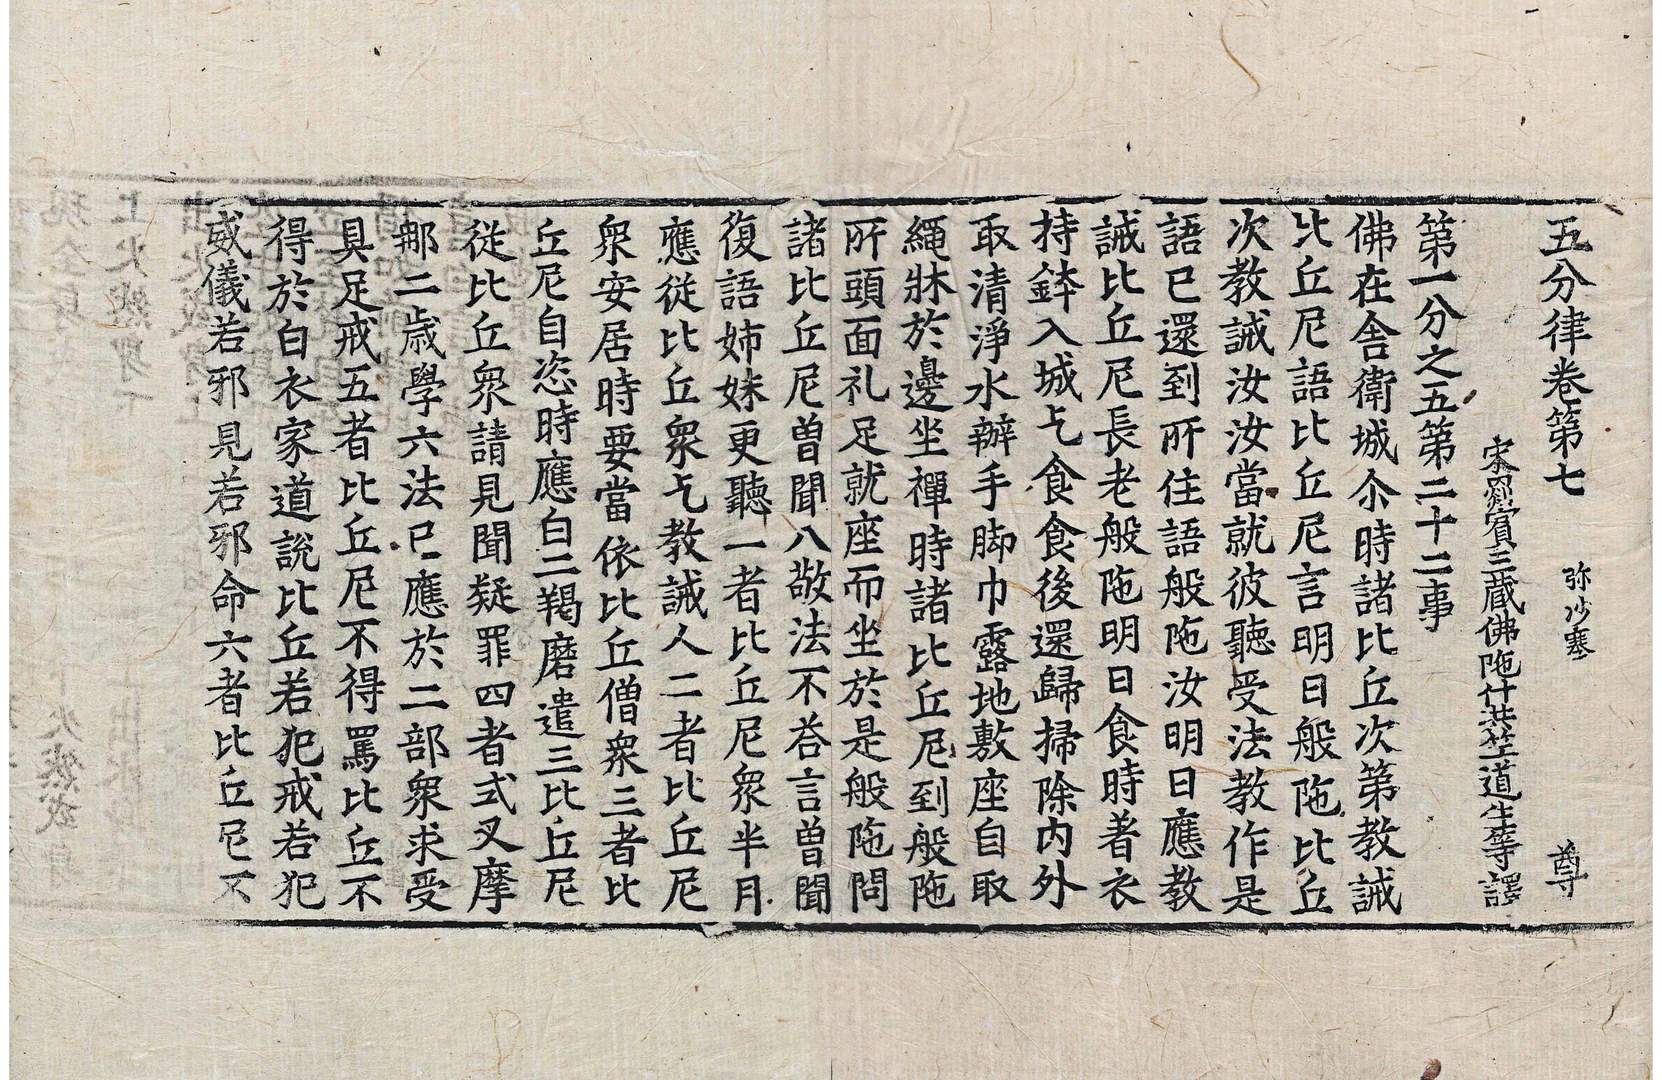 五分律卷第七 弥沙塞 尊
宋罽賓三藏佛陁什共竺道生等譯
第一分之五第二十二事
佛在舍衛城尒時諸比丘次第教誡
比丘尼語比丘尼言明日般陁比丘
次教誡汝汝當就彼聽受法教作是
語已還到所住語般陁汝明日應教
誡比丘尼長老般陁明日食時著衣
持鉢入城乞食食後還歸掃除内外
取清淨水辦手脚巾露地敷座自取
繩牀於邊坐禪時諸比丘尼到般陁
所頭面礼足就座而坐於是般陁問
諸比丘尼曽聞八敬法不荅言曽聞
復語姊妹更聽一者比丘尼衆半月
應從比丘衆乞教誡人二者比丘尼
衆安居時要當依比丘僧衆三者比
丘尼自恣時應白二羯磨遣三比丘尼
從比丘衆請見聞疑罪四者式叉摩
那二歳學六法已應於二部衆求受
具足戒五者比丘尼不得罵比丘不
得於白衣家道說比丘若犯戒若犯
威儀若邪見若邪命六者比丘尼不